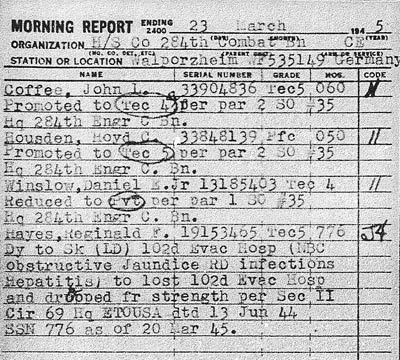 MORNING REPORT ENDING 2400 23 March 1945
(DAY) (MONTH) (YEAR)
ORGANIZATION H/S Co 284th Combat Bn CE
(HQ. CO. DET, ETC) (PARENT UNIT) (ARM OR SERVICE)
STATION OR LOCATION Walporzheim WF535149 Germany
NAME SERIAL NUMBER GRADE MOS. CODE
Coffee, John L. 33904836 Tec5 060
Promoted to Tec 4 per par 2 SO #35
Hq 284th Engr C Bn.
Housden, Hoyd C. 33848139 Pfc 050 //
Promoted to Tec 5 per par 2 SO #35
Hq 284th Engr C. Bn.
Winslow,Daniel E.Jr 13185403 Tec 4 //
Reduced to Pvt per par 1 SO #35
Hq 284th Engr C. Bn.
Hayes,Reginald F. 19153465 Tec5 776
Dy to Sk (LD) 102d Evac Hosp (NBC
Obstructive Jaundice RD infections
Hepatitis) to lost 102d Evac Hosp
and dropped fr strength per Sec II
Cir 69 Hq ETOUSA dtd 13 Jun 44
SSN 776 as of 20 Mar 45.